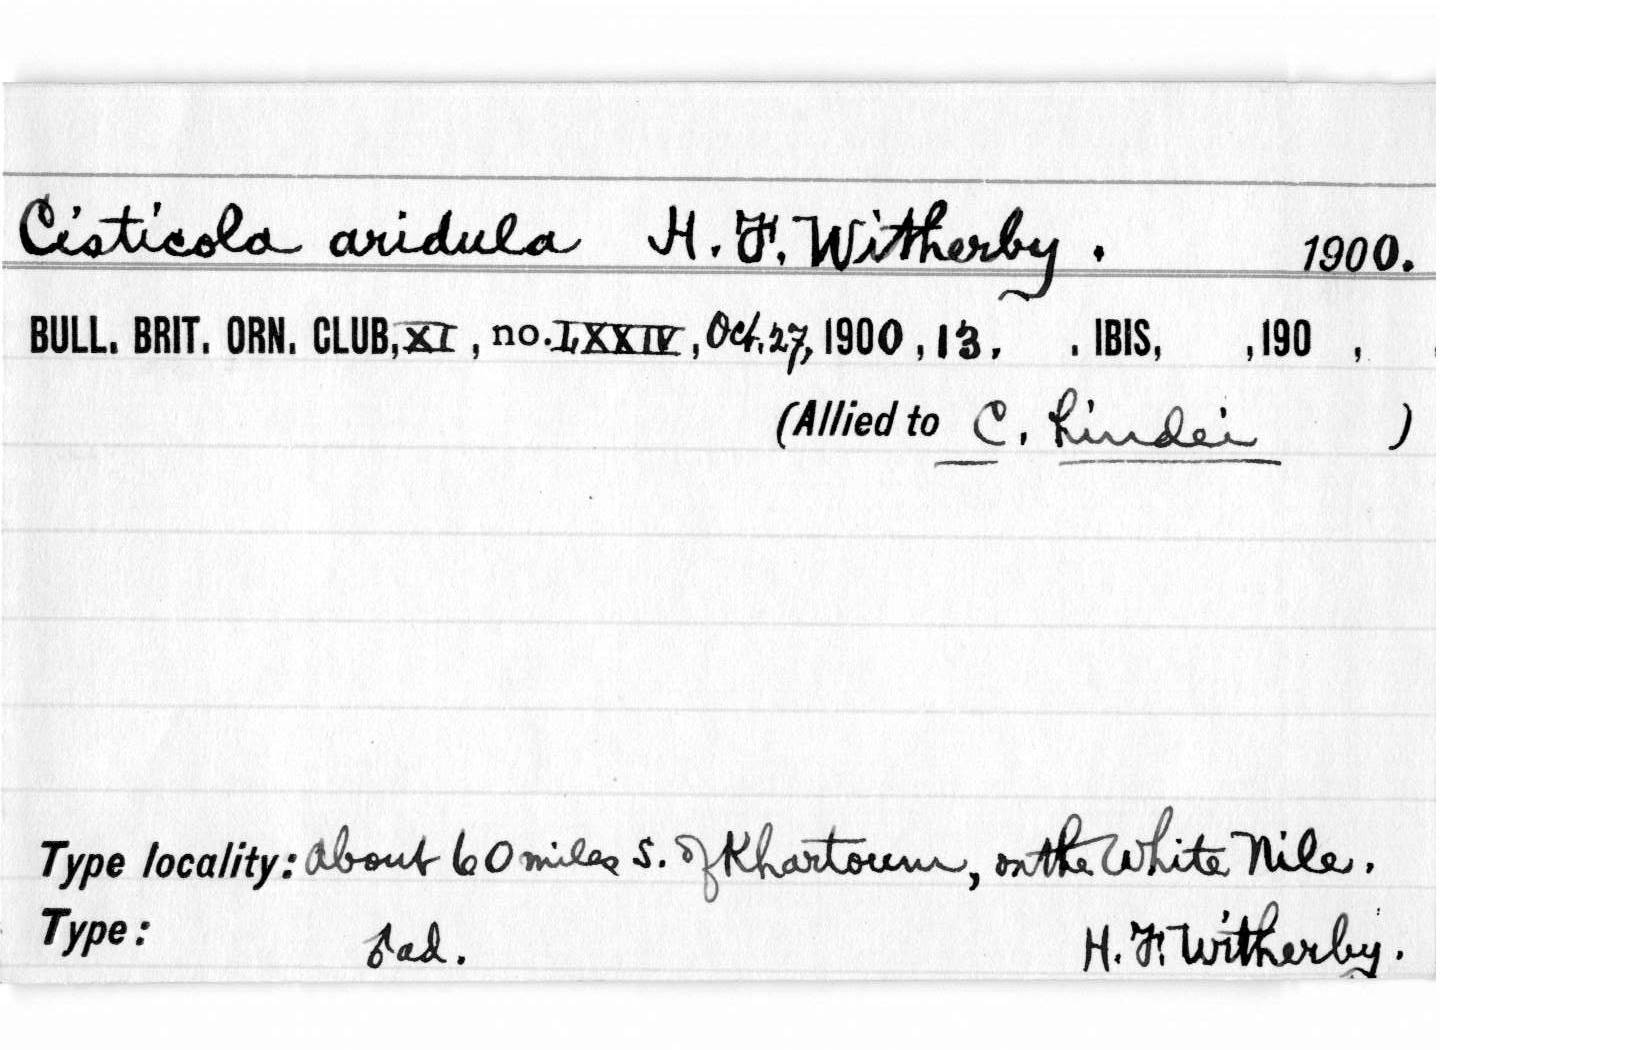 Cisticola aridula H. F. Witherby. 1900.
BULL. BRIT. ORN. CLUB, XI, no. LXXIV, Oct. 27, 1900, 13. . IBIS, , 190 ,
(Allied to C. lindei )
Type locality: About 60 miles S. of Khartoum, on the White Nile.
Type: ♂ ad. H. F. Witherby.